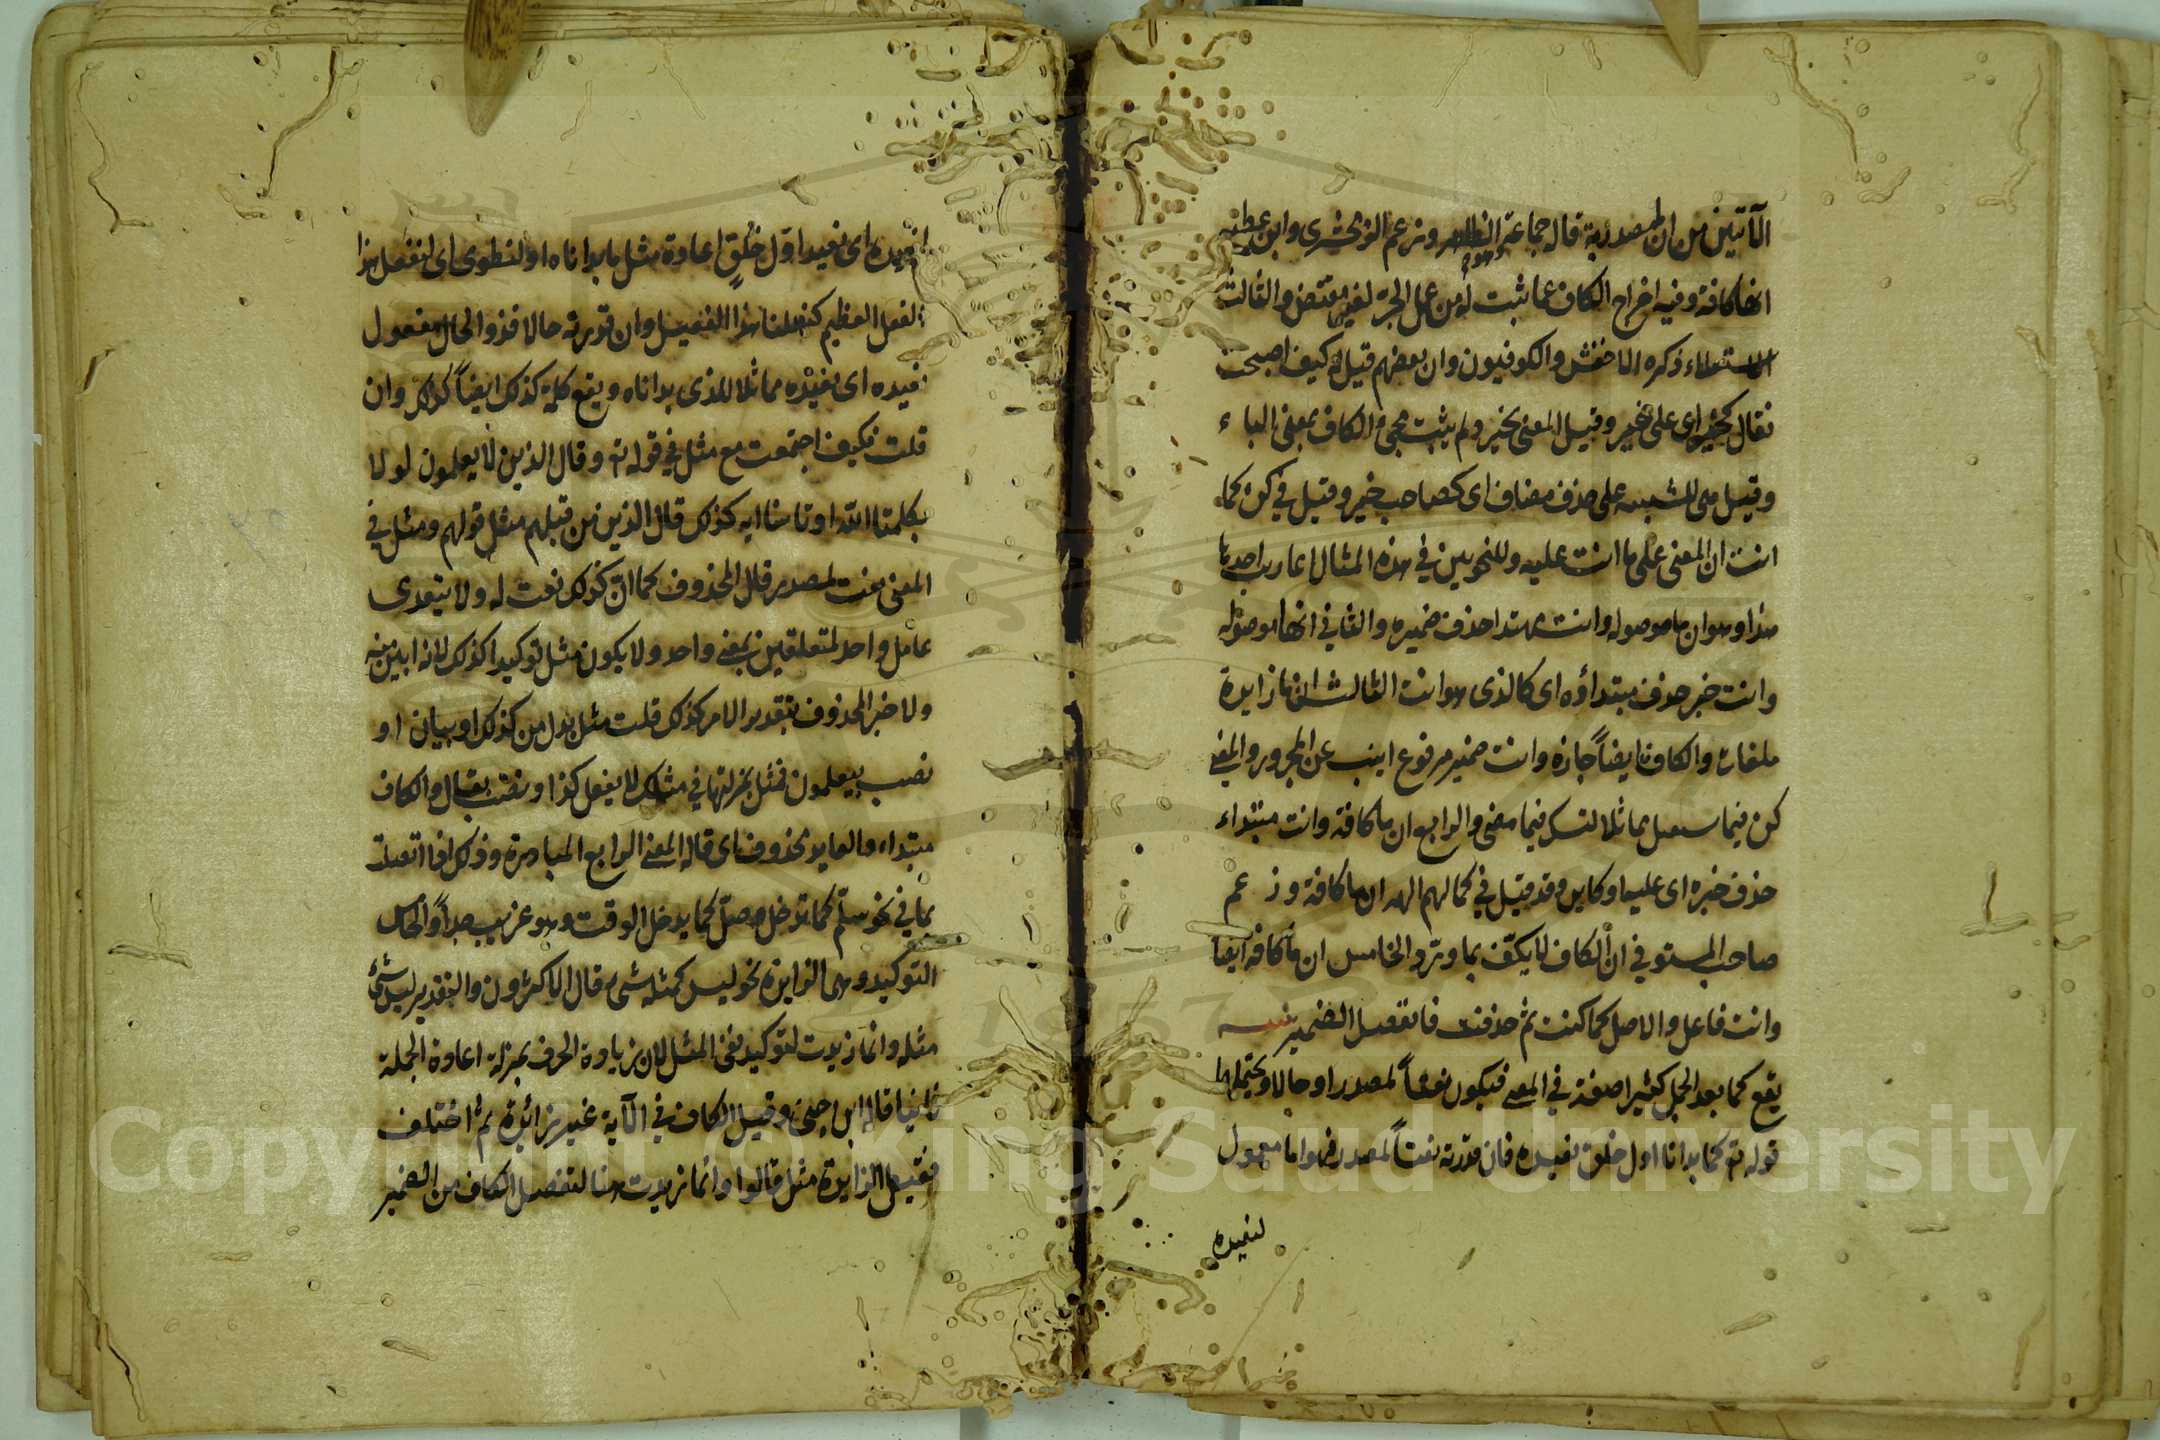 الآيتين من ان المصدرية قاله جماعة وهو الظاهر وزعم الزمخشرى وابن عطية
انها كافة وفيه اخراج الكاف عما ثبت له من عمل الجر لغير مقتض والثالث
الاستعلاء ذكره الاخفش والكوفيون وان بعضهم قيل له كيف اصبحت
فقال كخير اى على خير وقيل المعنى بخير ولم يثبت مجئ الكاف بمعنى الباء
وقيل هى للتشبيه على حذف مضاف اى كصاحب خير وقيل فى كن كما
انت ان المعنى على ما انت عليه وللنحويين فى هذه المثال اعاريب احدها
هذا وهو ان ما موصوله وانت مبتدا حذف خبره والثانى انها موصوله
وانت خبر حذف مبتداؤه اى كالذى هو انت الثالث انها زايدة
ملغاة والكاف ايضاً جارة وانت ضمير مرفوع انيب عن المجرور والمعنى
كن فيما ستقبل مماثلا لنفسك فيما مضى والرابع ان ما كافة وانت مبتداء
حذف خبره اى عليه او كاين وقد قيل فى كما لهم الهة ان ما كافة وزعم
صاحب المستوفى ان الكاف لا يكف بما ورد الخامس ان ما كافه ايضا
وانت فاعل والاصل كما كنت ثم حذفت فانفصل الضمير تنبيه
يقع كما بعد الجمل كثيرا صفة فى المعنى فيكون نعتاً لمصدر او حالا ويحتملهما
قوله تع كما بدانا اول خلق نعيده فان قدرته نعتاً لمصدر فهو اما معمول
لنعيده
لنعيده اى نعيد اول خلقٍ اعادة مثل ما بداناه او لنطوى اى لنفعل هذا
الفعل العظيم كفعلنا هذا الفعل وان قدرته حالا فذو الحال مفعول
نعيده اى نعيده مماثلا للذى بداناه ويقع كلمة كذلك ايضاً كذلك وان
قلت فكيف اجتمعت مع مثل فى قوله تع وقال الذين لا يعلمون لولا
يكلمنا الله او تاتينا ايه كذلك قال الذين من قبلهم مثل قولهم ومثل فى
المعنى نعت لمصدر قال المحذوف كما انّ كذلك نعت له ولا يتعدى
عامل واحد لمتعلقين بمعنى واحد ولا يكون مثل توكيدا كذلك لانه ابين منه
ولا خبر المحذوف بتقدير الامر كذلك قلت مثل بدل من كذلك او بيان او
نصب بيعلمون فمثل بمنزلتها فى مثلك لا يفعل كذا او نصب بقال والكاف
مبتداء والعايد محذوف اى قاله المعنى الرابع المبادرة وذلك اذا اتصلت
بما فى نحو سلّم كما تدخل وصلّ كما يدخل الوقت وهو غريب جداً والخامس
التوكيد وهى الزايدة نحو ليس كمثله شىء قال الاكثرون والتقدير ليس شئ
مثله وانما زيدت لتوكيد نفى المثل لان زيادة الحرف بمنزلة اعادة الجملة
ثانيا قاله ابن جنى وقيل الكاف فى الآية غير زائدة ثم اختلف
فقيل الزايدة مثل قالوا وانما زيدت هنا لتفصل الكاف من الضمير